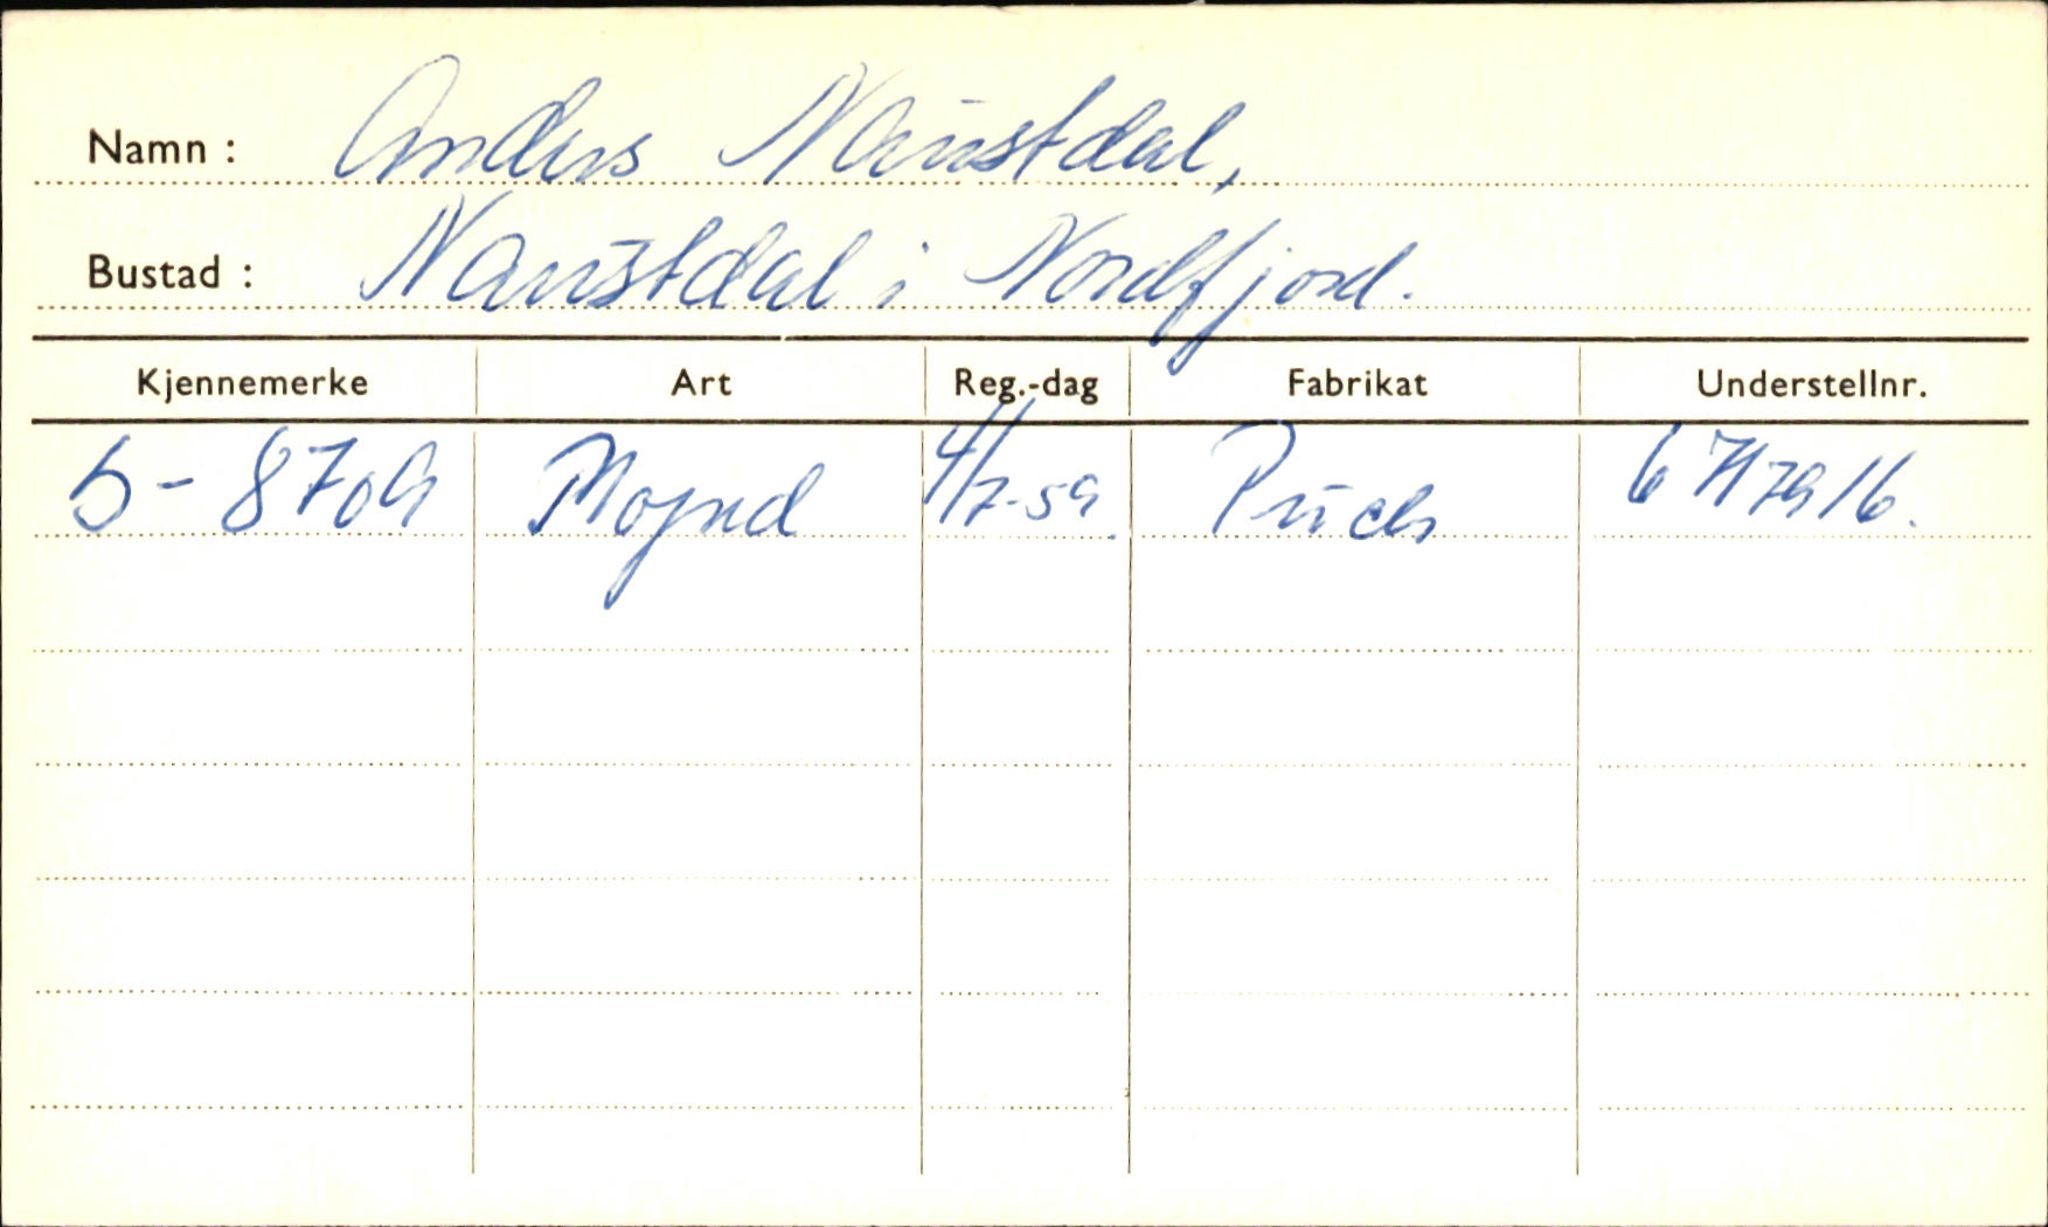 Namn : Anders Naustdal,
Bustad : Naustdal i Nordfjord.
Kjennemerke Art Reg.-dag Fabrikat Understellnr.
S-8709 Moped 4/7-59. Puch